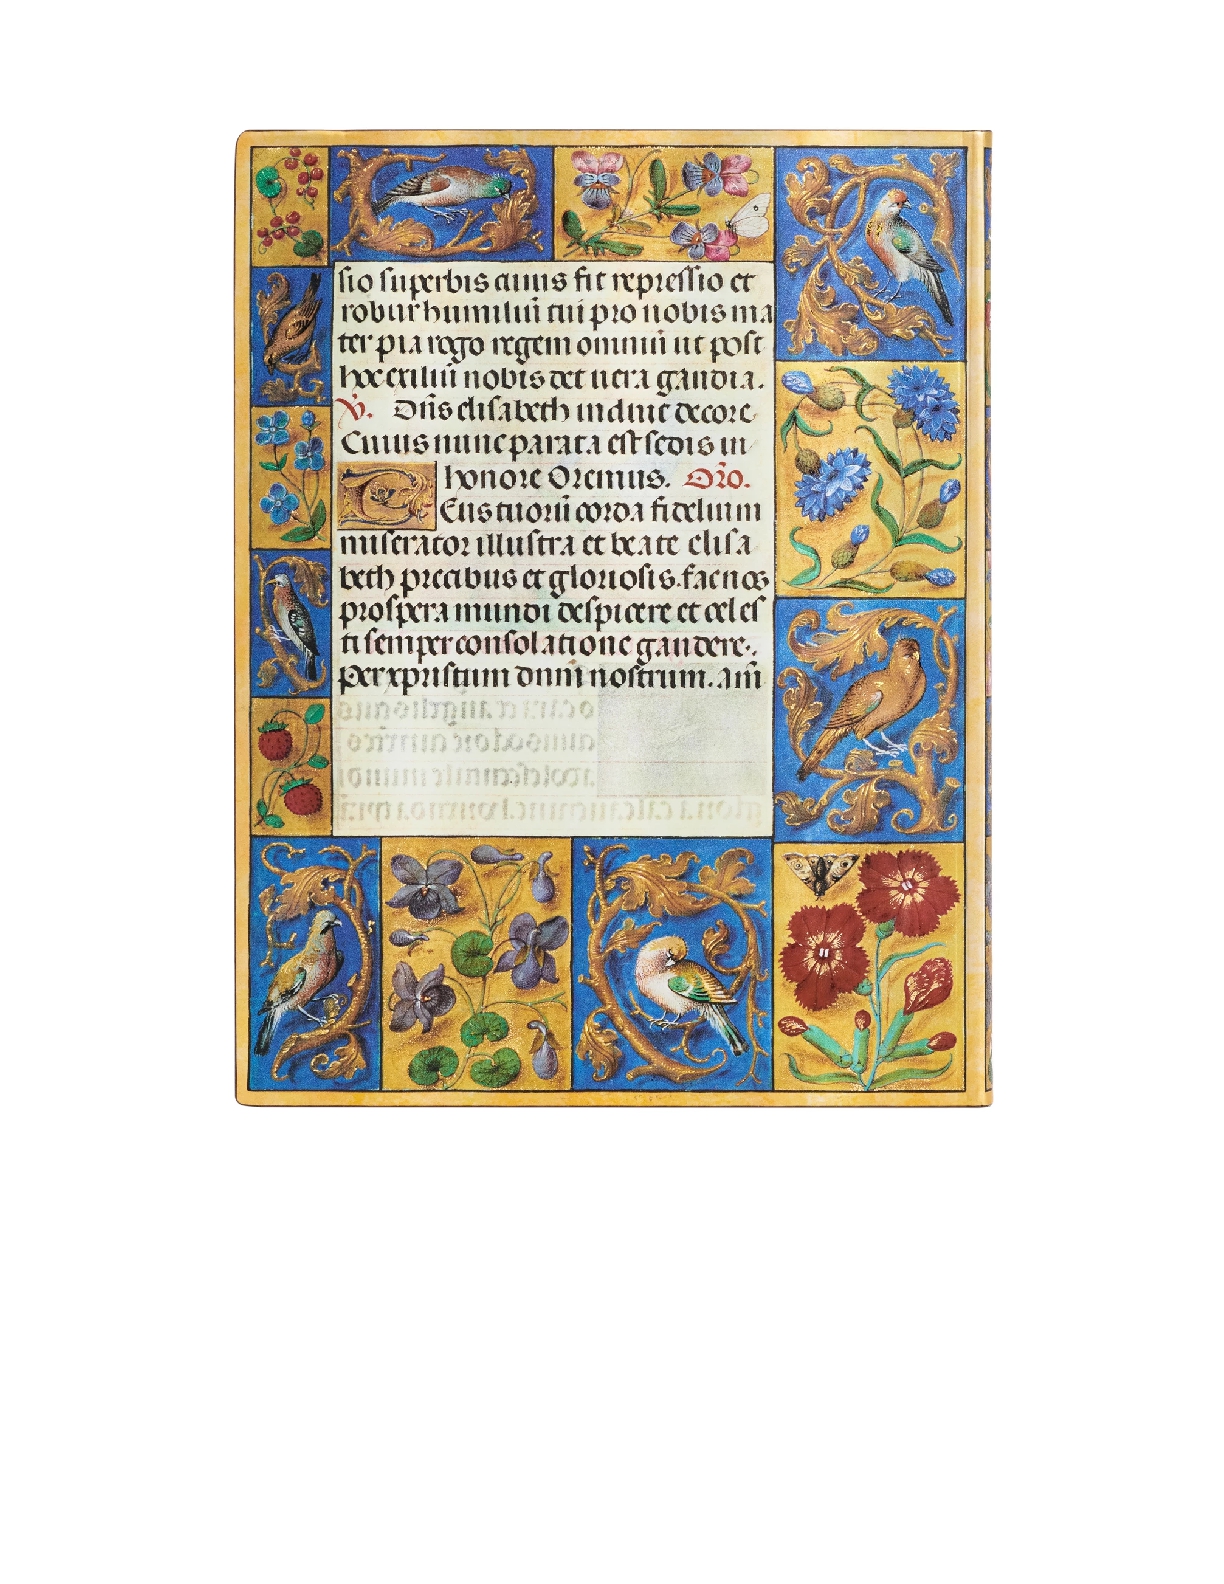 sio superbis cuius fit repressio et
robur humiliū tui pro nobis ma
ter pia rogo regem omniū ut post
hoc exiliū nobis det uera gaudia.
V. Dn̄s elisabeth induit decore
Cuius nunc parata est sedis in
honore Oremus. Orō.
Eus tuorū corda fidelium
miserator illustra et beate elisa
beth precibus et gloriosis. fac nos
prospera mundi despicere et celes
ti semper consolatione gaudere.
Per xpristum dnm̄ nostrum. am̄